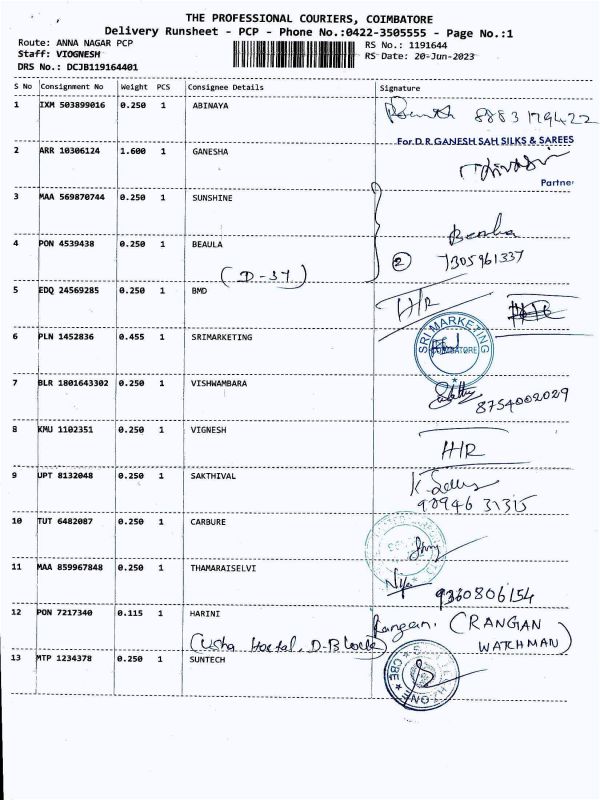 THE PROFESSIONAL COURIERS, COIMBATORE
Delivery Runsheet - PCP - Phone No.:0422-3505555 - Page No.:1
Route: ANNA NAGAR PCP RS No.: 1191644
Staff: VIOGNESH RS Date: 20-Jun-2023
DRS No.: DCJB119164401
S No Consignment No Weight PCS Consignee Details Signature
1 IXM 503899016 0.250 1 ABINAYA 8883179422
For.D.R.GANESH SAH SILKS & SAREES
2 ARR 10306124 1.600 1 GANESHA
Partner
3 MAA 569870744 0.250 1 SUNSHINE
4 PON 4539438 0.250 1 BEAULA Beaula
(D-37) 2 7305961337
5 EDQ 24569285 0.250 1 BMD H/R
6 PLN 1452836 0.455 1 SRIMARKETING SRI MARKETING COIMBATORE
7 BLR 1801643302 0.250 1 VISHWAMBARA 8754002029
8 KMU 1102351 0.250 1 VIGNESH H/R
9 UPT 8132048 0.250 1 SAKTHIVAL
90946 31315
10 TUT 6482087 0.250 1 CARBURE
11 MAA 859967848 0.250 1 THAMARAISELVI 9360806154
12 PON 7217340 0.115 1 HARINI Rangan. (RANGAN WATCHMAN)
(Usha Hostel, D-Block)
13 MTP 1234378 0.250 1 SUNTECH CBE